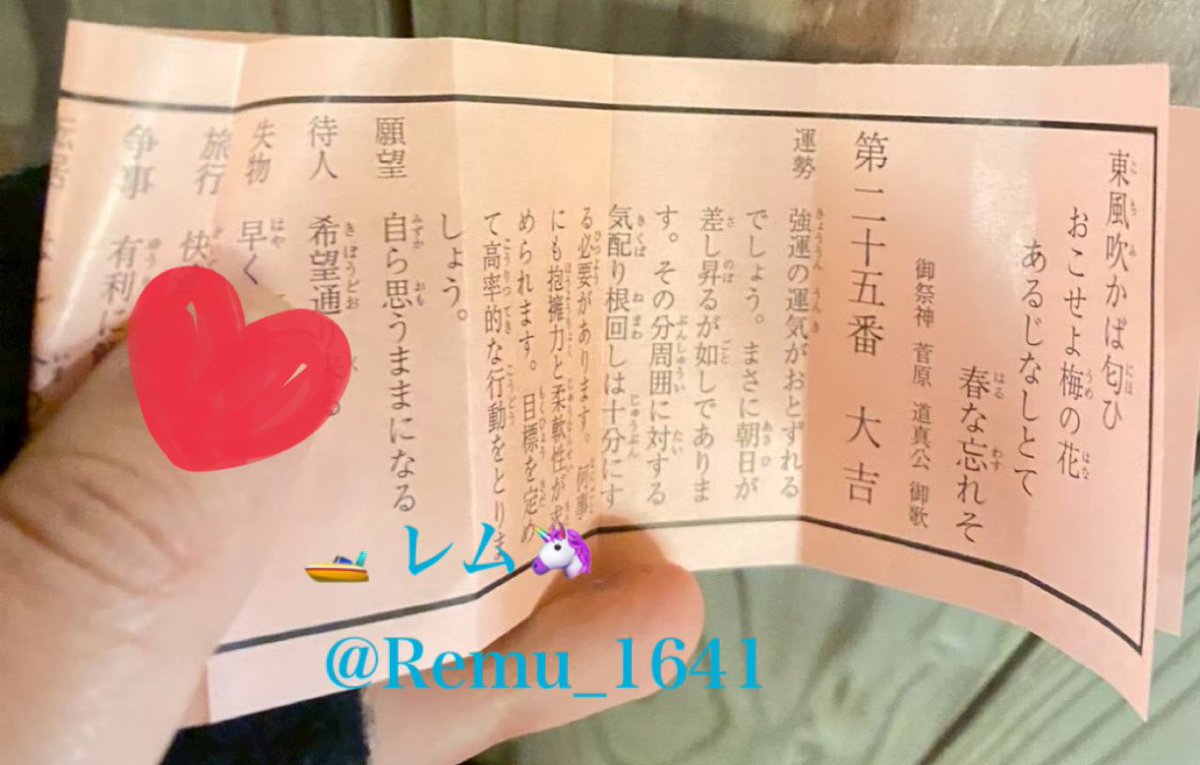 東風吹かば匂ひ
おこせよ梅の花
あるじなしとて
春な忘れそ
御祭神 菅原 道真公 御歌
第二十五番 大吉
運勢 強運の運気がおとずれる
でしょう。まさに朝日が
差し昇るが如しでありま
す。その分周囲に対する
気配り根回しは十分にす
る必要があります。何事
にも抱擁力と柔軟性が求
められます。目標を定め
て高率的な行動をとりま
しょう。
願望 自ら思うままになる
待人 希望通り
失物 早く
旅行 快
争事 有利に
レム
@Remu_1641